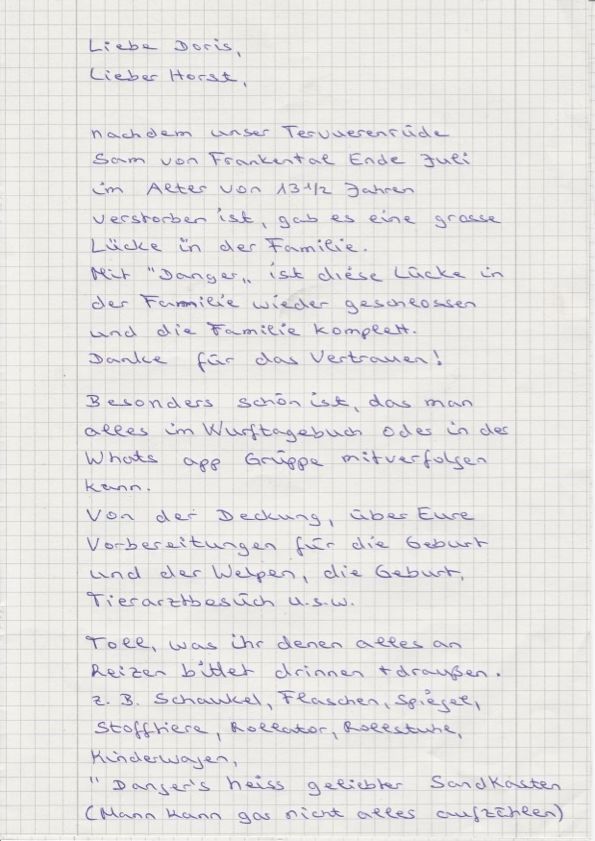 Liebe Doris,
Lieber Horst,
nachdem unser Tervuerenrüde
Sam von Frankental Ende Juli
im Alter von 13 1/2 Jahren
verstorben ist, gab es eine grosse
Lücke in der Familie.
Mit "Danger" ist diese Lücke in
der Familie wieder geschlossen
und die Familie komplett.
Danke für das Vertrauen!
Besonders schön ist, das man
alles im Wurftagebuch oder in der
Whats app Gruppe mitverfolgen
kann.
Von der Deckung, über Eure
Vorbereitungen für die Geburt
und der Welpen, die Geburt,
Tierarztbesuch u.s.w.
Toll, was ihr denen alles an
Reizen bittet drinnen + draußen.
z. B. Schaukel, Flaschen, Spiegel,
Stofftiere, Rollator, Rollstuhl,
Kinderwagen,
" Danger's heiss geliebter Sandkasten
(Mann kann gar nicht alles aufzählen)